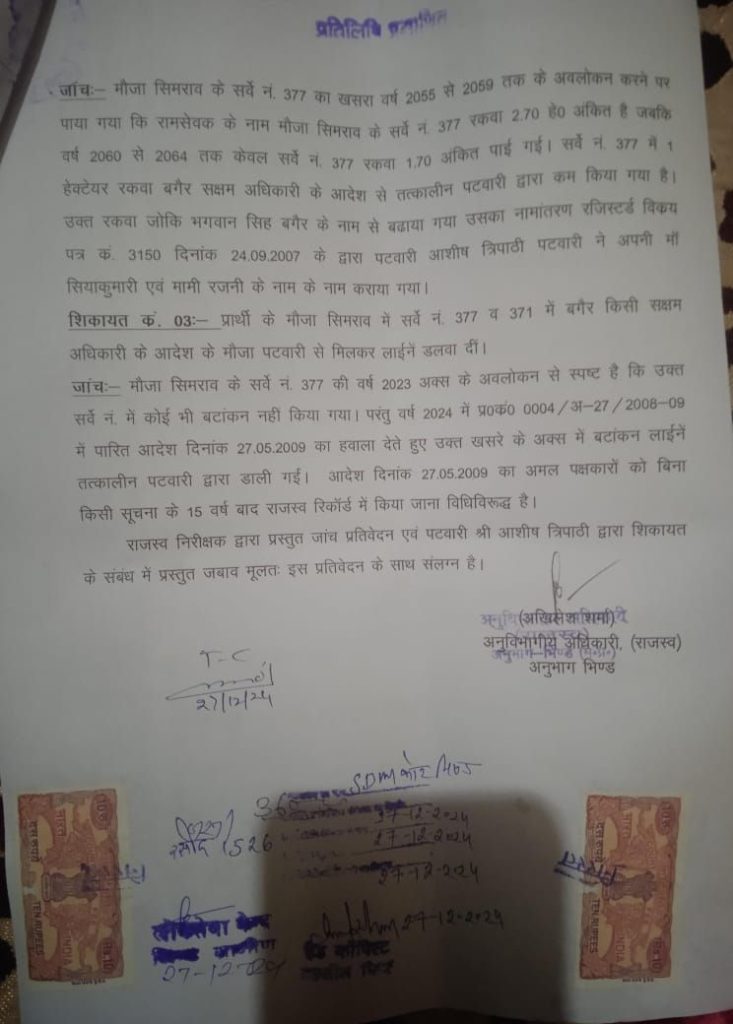 प्रतिलिपि
जांचः– मौजा सिमराव के सर्वे नं. 377 का खसरा वर्ष 2055 से 2059 तक के अवलोकन करने पर
पाया गया कि रामसेवक के नाम मौजा सिमराव के सर्वे नं. 377 रकवा 2.70 हे0 अंकित है जबकि
वर्ष 2060 से 2064 तक केवल सर्वे नं. 377 रकवा 1.70 अंकित पाई गई। सर्वे नं. 377 में 1
हेक्टेयर रकवा बगैर सक्षम अधिकारी के आदेश से तत्कालीन पटवारी द्वारा कम किया गया है।
उक्त रकवा जोकि भगवान सिह बगैर के नाम से बढाया गया उसका नामांतरण रजिस्टर्ड विक्रय
पत्र कं. 3150 दिनांक 24.09.2007 के द्वारा पटवारी आशीष त्रिपाठी पटवारी ने अपनी माँ
सियाकुमारी एवं मामी रजनी के नाम के नाम कराया गया।
शिकायत कं. 03ः– प्रार्थी के मौजा सिमराव में सर्वे नं. 377 व 371 में बगैर किसी सक्षम
अधिकारी के आदेश के मौजा पटवारी से मिलकर लाईनें डलवा दीं।
जांचः– मौजा सिमराव के सर्वे नं. 377 की वर्ष 2023 अक्स के अवलोकन से स्पष्ट है कि उक्त
सर्वे नं. में कोई भी बटांकन नहीं किया गया। परंतु वर्ष 2024 में प्र0कं0 0004/अ–27/2008–09
में पारित आदेश दिनांक 27.05.2009 का हवाला देते हुए उक्त खसरे के अक्स में बटांकन लाईनें
तत्कालीन पटवारी द्वारा डाली गई। आदेश दिनांक 27.05.2009 का अमल पक्षकारों को बिना
किसी सूचना के 15 वर्ष बाद राजस्व रिकॉर्ड में किया जाना विधिविरूद्ध है।
राजस्व निरीक्षक द्वारा प्रस्तुत जांच प्रतिवेदन एवं पटवारी श्री आशीष त्रिपाठी द्वारा शिकायत
के संबंध में प्रस्तुत जबाव मूलतः इस प्रतिवेदन के साथ संलग्न है।
(अखिलेश शर्मा)
अनुविभागीय अधिकारी, (राजस्व)
अनुभाग भिण्ड
T-C
27/12/24
SDM कोर्ट भिण्ड
रसीद 1526
27-12-2024
27-12-2024
27-12-2024
27-12-2024
27-12-2024
भारत
INDIA
TEN RUPEES
दस रुपये
भारत
INDIA
TEN RUPEES
दस रुपये